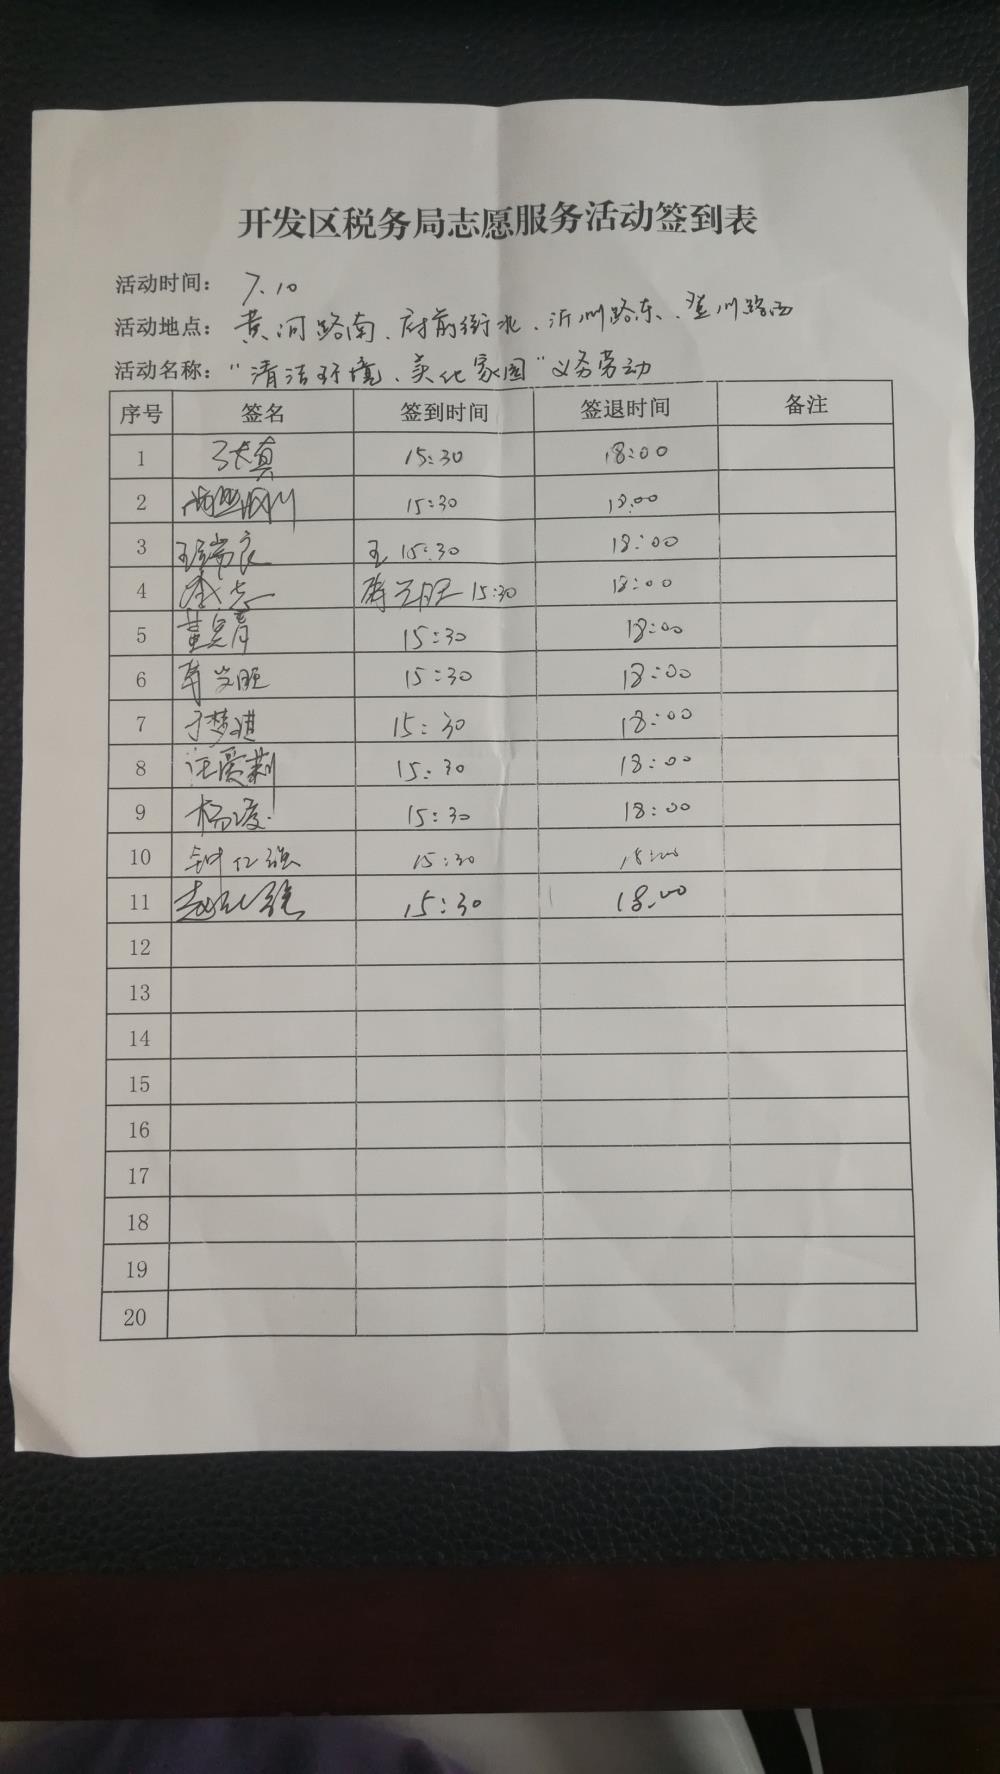 开发区税务局志愿服务活动签到表
活动时间： 7.10
活动地点： 黄河路南、府前街北、沂州路东、
活动名称： "清洁环境、美化家园"义务劳动
序号 签名 签到时间 签退时间 备注
1 张真 15:30 18:00
2 15:30 18:00
3 王瑞良 王 15:30 18:00
4 15:30 18:00
5 15:30 18:00
6 15:30 18:00
7 于梦琪 15:30 18:00
8 汪爱莉 15:30 18:00
9 15:30 18:00
10 钟仁强 15:30 18:00
11 15:30 18:00
12
13
14
15
16
17
18
19
20